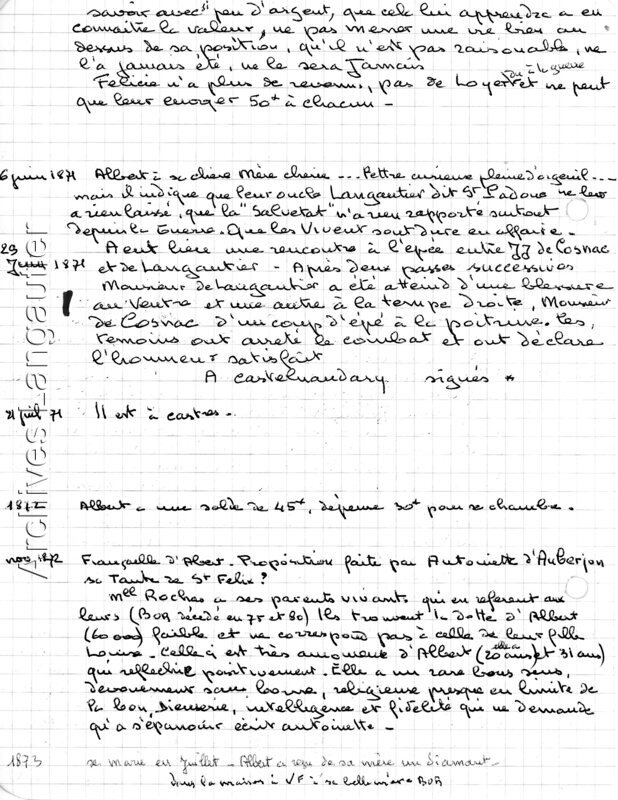 savoir avec si peu d'argent, que cela lui apprendra a en
connaitre la valeur, ne pas mener une vie bien au
dessus de sa position, qu'il n'est pas raisonable, ne
l'a jamais été, ne le sera Jamais
Felicie n'a plus de revenu, pas de Loyer du à la guerre et ne peut
que leur envoyer 50f à chacun -
6 juin 1871 Albert à sa chère Mère cherie --- Lettre curieuse pleine d'orgeuil ---
mais il indique que leur oncle Langautier dit St Padoue ne leur
a rien laissé, que la "Salvetat" n'a rien rapporté surtout
depuis la Guerre. Que les Vivent sont dure en affaire -
29 Juin 1871 A eut lieu une rencontre à l'epée entre JJ de Cosnac
et de Langautier - Après deux passes successives
Monsieur de Langautier a été atteind d'une blessure
au Ventre et une autre à la tempe droite, Monsieur
de Cosnac d'un coup d'épé à la poitrine. Les,
temoins ont arreté le combat et ont déclaré
l'honneur satisfait
A castelnaudary signés *
21 juil 71 Il est à castres -
1872 Albert a une solde de 45f, depense 30f pour sa chambre.
nov, 1872 Françaille d'Abert. Proposition faite par Antoinette d'Auberjon
sa Tante de St Felix?
Mlle Roches a ses parents vivants qui en referent aux
leurs (BOR décédé en 75 et 80) Ils trouvent la dotte d'Albert
(60 000) faible et ne correspond pas à celle de leur fille
Louise. Celle ci est très amoureuse d'Albert (20 ans elle a et 31 ans)
qui reflechie positivement. Elle a un rare bons sens,
devouement sans borne, religieuse presque en limite de
la bon Dieuserie, intelligence et fidelité qui ne demande
qu'a s'épanouir écrit antoinette -
1873 se marie en Juillet - Albert a reçu de sa mère un diamant -
dans la maison à VF à sa belle mère BOR
Archives Langautier